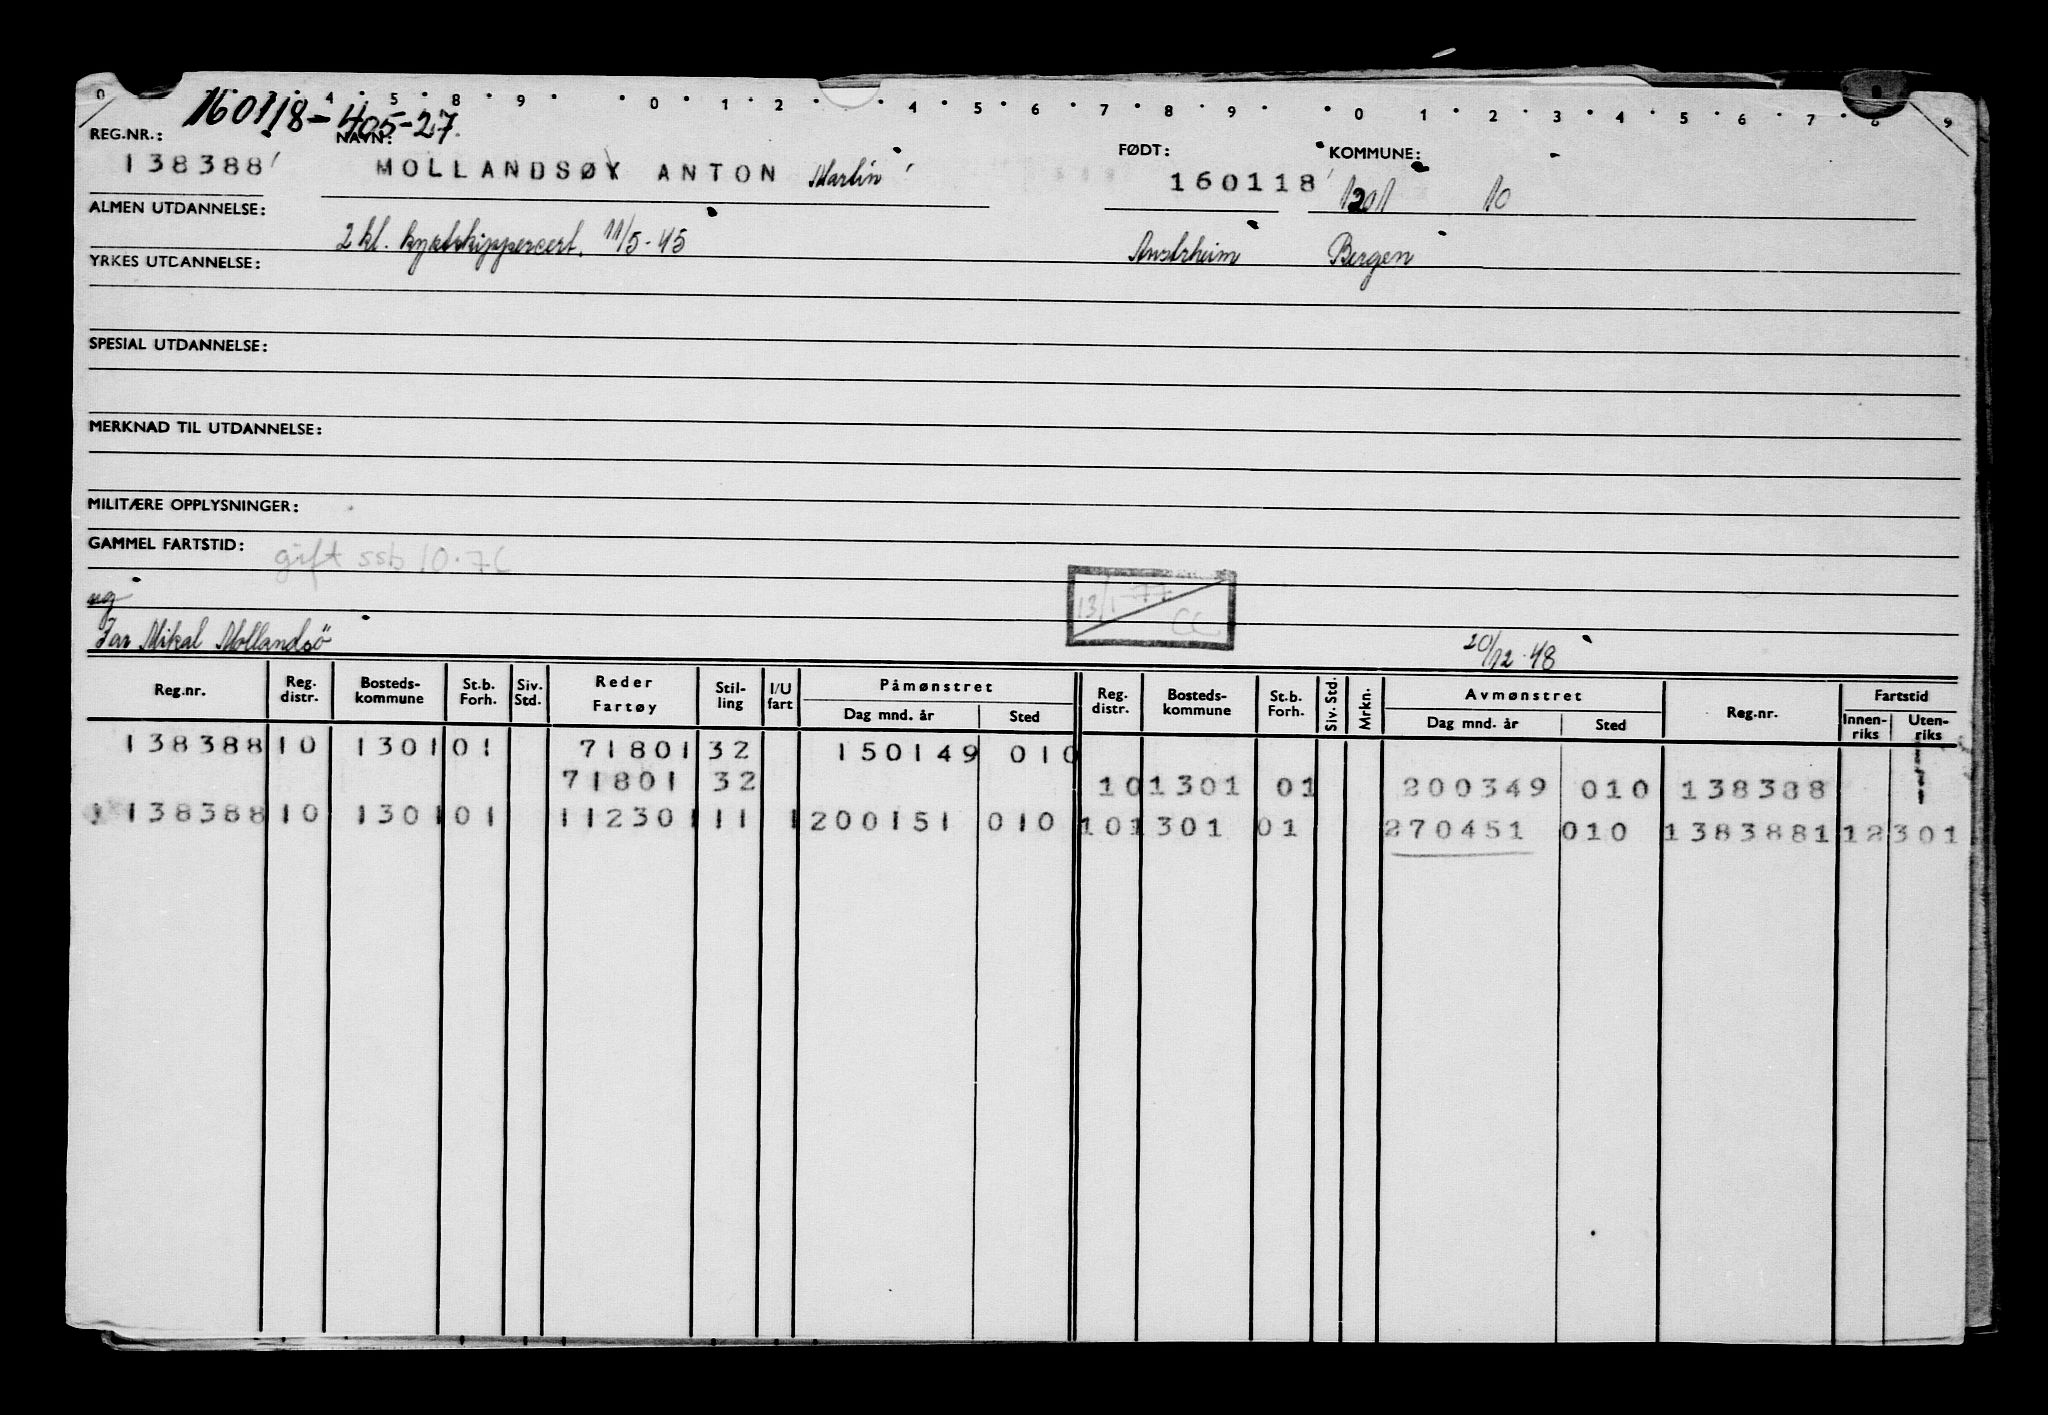 0 4 5 8 9 0 1 2 4 5 6 7 8 9 0 1 2 3 4 5 6 7 8 9
160118-405-27.
REG.NR.: NAVN: FØDT: KOMMUNE:
138388 MOLLANDSØY ANTON Martin 160118 1201 10
ALMEN UTDANNELSE:
2 kl. kystskippercert. 11/5-45 Austrheim Bergen
YRKES UTDANNELSE:
SPESIAL UTDANNELSE:
MERKNAD TIL UTDANNELSE:
MILITÆRE OPPLYSNINGER:
GAMMEL FARTSTID: gift ssb 10.76
13/1-77 CC
ug
Far Mikal Mollandsö 20/12-48
Reg.nr. Reg. distr. Bosteds- kommune St.b. Forh. Siv. Std. Reder Fartøy Stil- ling I/U fart Påmønstret Dag mnd. år Sted Reg. distr. Bosteds- kommune St.b. Forh. Siv. Std. Mrkn. Avmønstret Dag mnd. år Sted Reg.nr. Fartstid Innen- riks Uten- riks
138388 10 1301 01 71801 32 150149 010
71801 32 10 1301 01 200349 010 138388
138388 10 1301 01 112301 11 1 200151 010 10 1301 01 270451 010 1383881 12 301